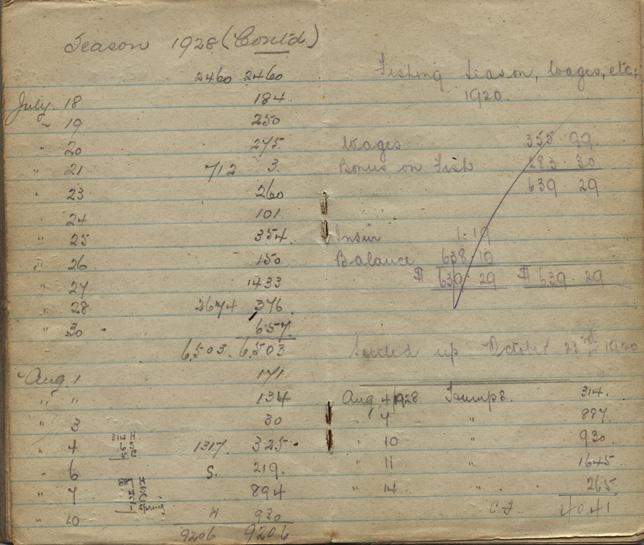 Season 1928 (Contd.)
2460 2460
July 18 184.
" 19 250
" 20 275.
" 21 712 3.
" 23 260
" 24 101
" 25 354.
" 26 150
" 27 1433
" 28 2674 376
" 30 657
6,503. 6,503
Aug. 1 171
" " 134
" 3 30
" 4 1317. 325.
" 6 S. 219.
" 7 894
" 10 H 930
9206 9206
Fishing Season, Wages, etc;
1920.
Wages 355.99
Bonus on Fish 283.30
639.29
Insur 1.19
Balance 638.10
$ 639.29 $ 639.29
Settled up October 23rd 1920
Aug 4/1928 Humps. 314.
" 7 " 887
" 10 " 930.
" 11 " 1645
" 14 " 265
4041